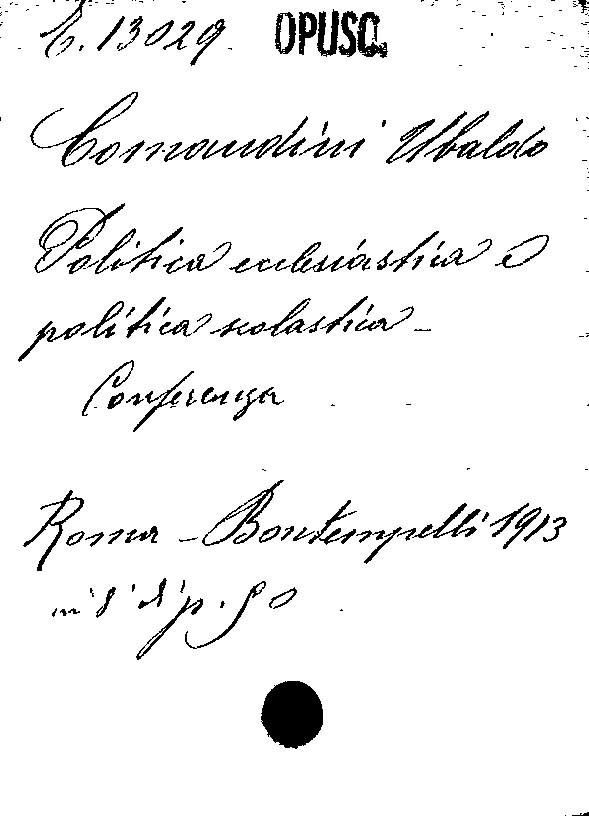 E. 13029 OPUSC.
Comandini Ubaldo
Politica ecclesiastica e
politica scolastica –
Conferenza
Roma – Bontempelli 1913
in 8° di p.